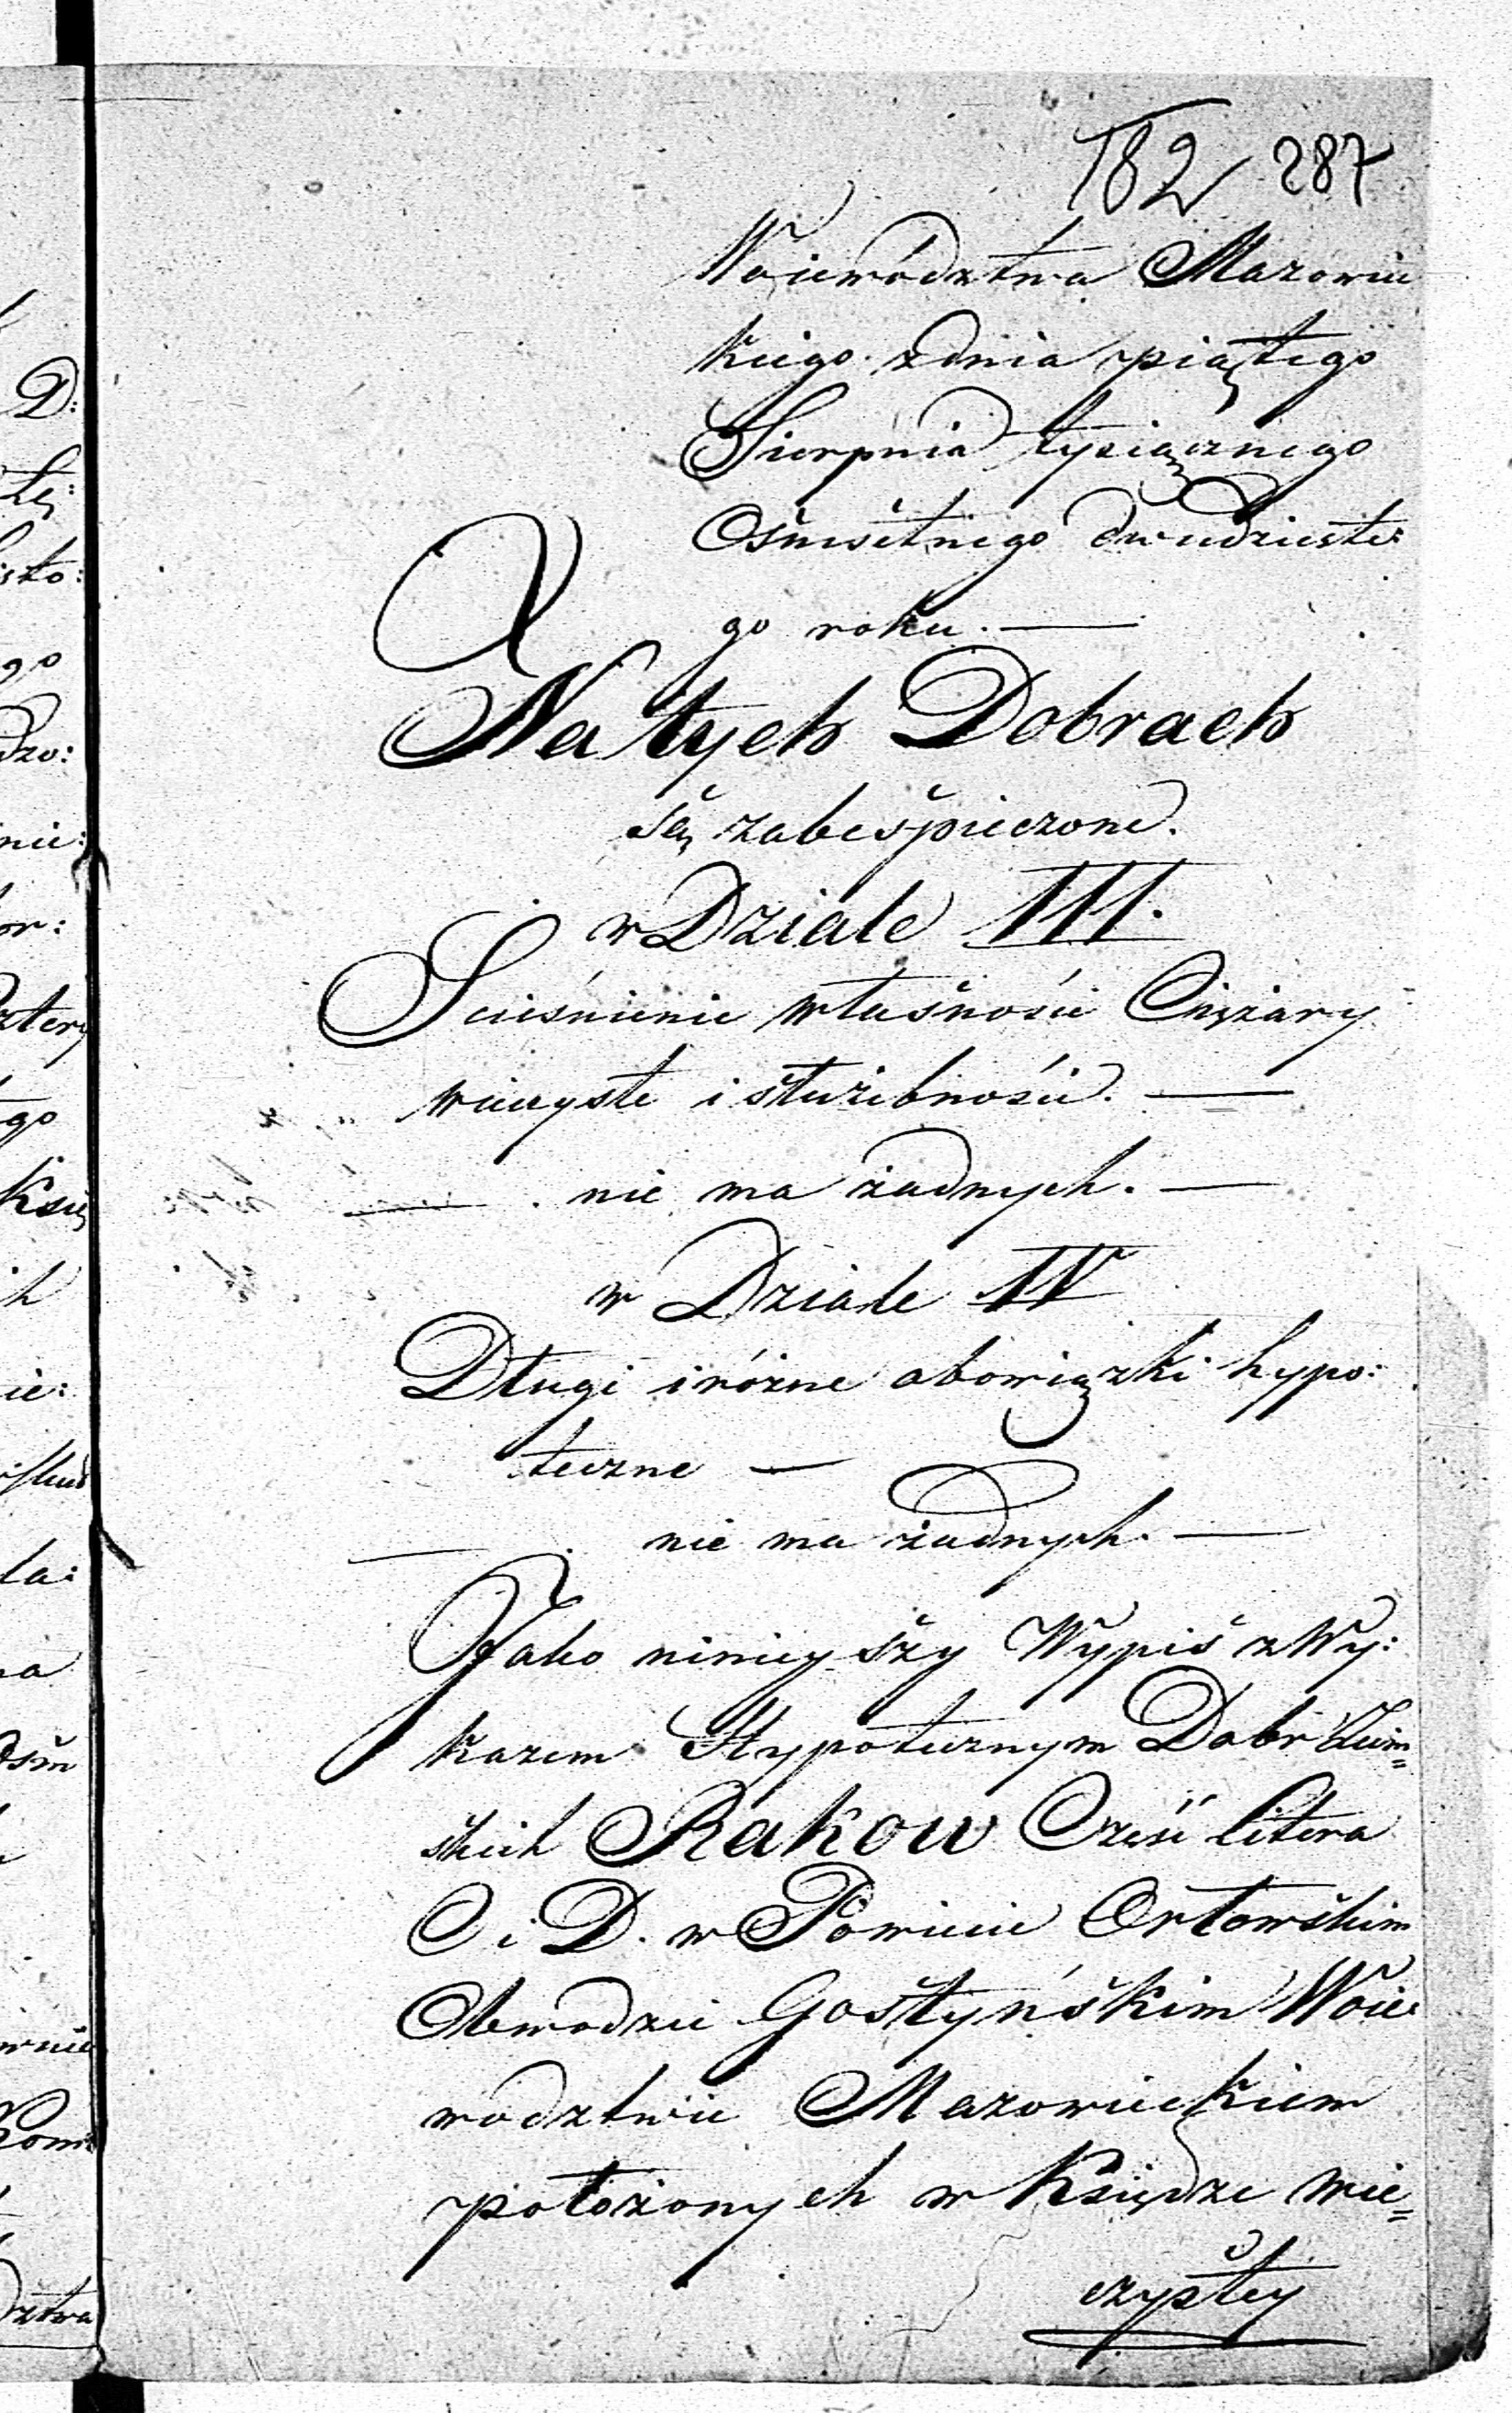 182 287
Woiewództwa Mazowiec
kiego z dnia piątego
Sierpnia tysiącznego
Ośmsetnego dwudzieste:
go roku. —
Na tych Dobrach
są zabespieczone.
w Dziale III.
Scieśnienie własności Ciężary
wieczyste i służebności. —
— nie ma żadnych. —
w Dziale IV
Długi i różne obowiązki hypo:
teczne —
— nie ma żadnych. —
Jako ninieyszy Wypis z Wy:
kazem Hypotecznym Dobr Ziem=
skich Rakow Częsć litera
C i D. w Powiecie Orłowskim
Obwodzie Gostyńskim Woie:
wodztwie Mazowieckiem
położonych w Księdze wie=
czystey
D:
tę:
sto:
go
dzo:
nie:
or:
cztery
go
Księ
h
ie:
ta:
na
ośm
wnie
dztwa